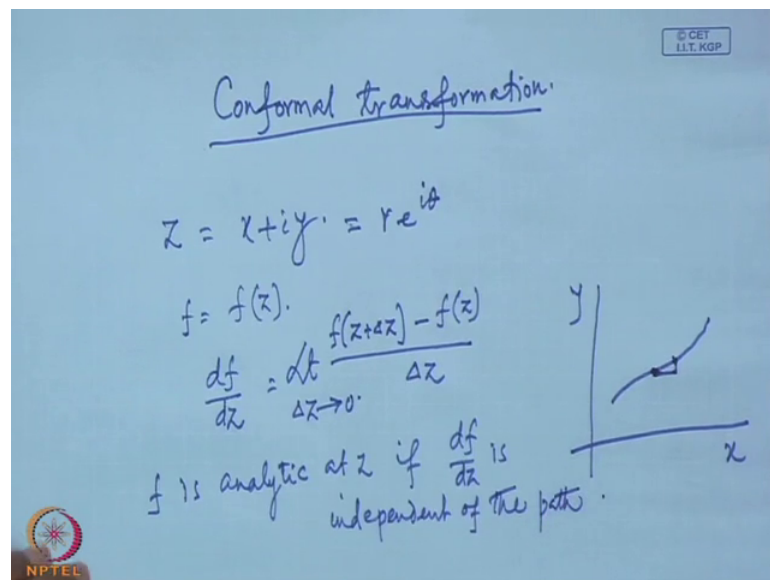 © CET
I.I.T. KGP
Conformal transformation.
z = x+iy. = re^{iθ}
f = f(z).
df/dz = Lt_{Δz→0.} (f(z+Δz) - f(z))/Δz
y
x
f is analytic at z if df/dz is
independent of the path.
NPTEL